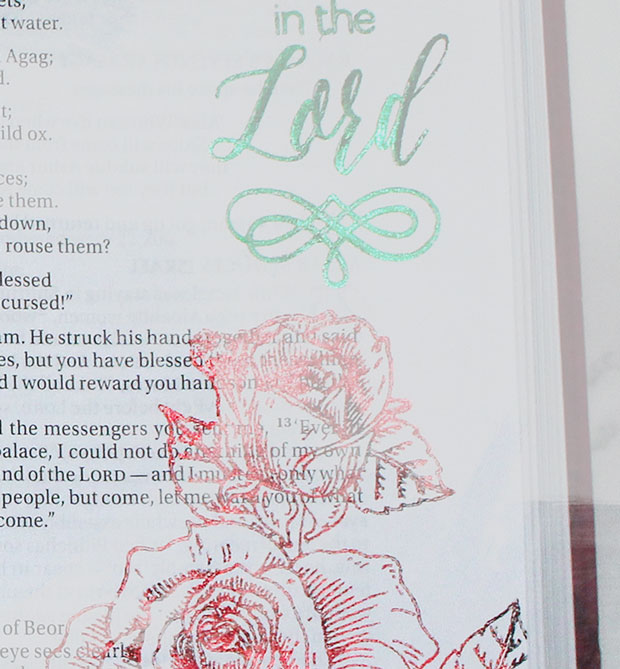 in the
Lord
t water.
Agag;
ild ox.
them.
down,
rouse them?
lessed
cursed!”
am. He struck his hands together and said
es, but you have blessed
d I would reward you handsomely
d the messengers you sent me, 13 ‘Even
palace, I could not do anything of my own
nd of the LORD — and I must say only what
people, but come, let me warn you of what
come.”
of Beor
eye sees clearly